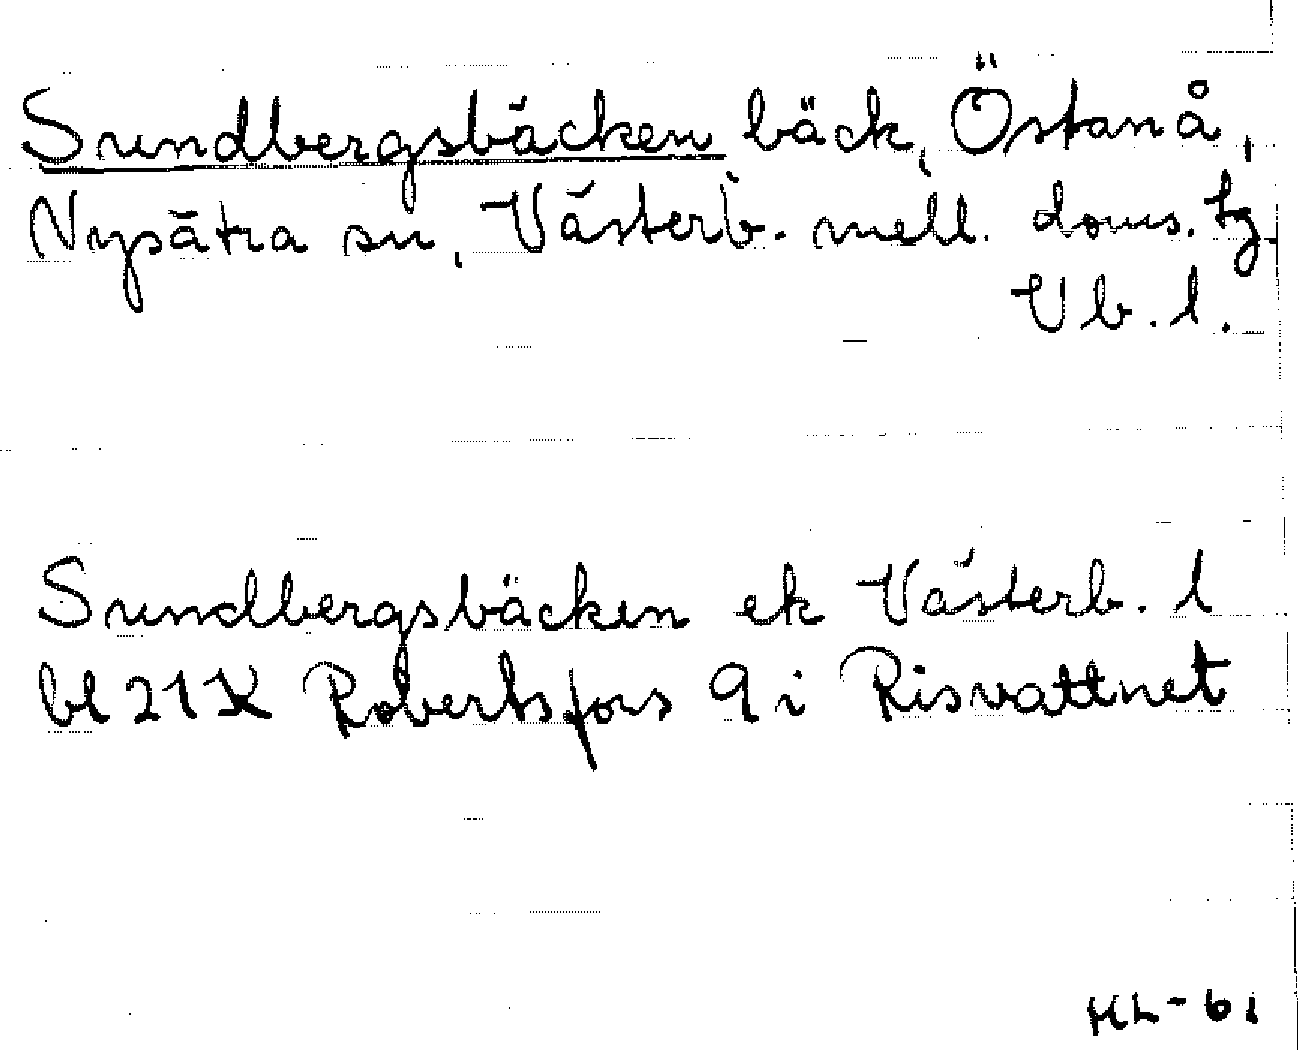 Sundbergsbäcken bäck, Östanå,
Nysätra sn, Västerb. mell. doms. tg.
Vb. l.
Sundbergsbäcken ek Västerb. l
bl 21K Robertsfors 9 i Risvattnet
HL-61